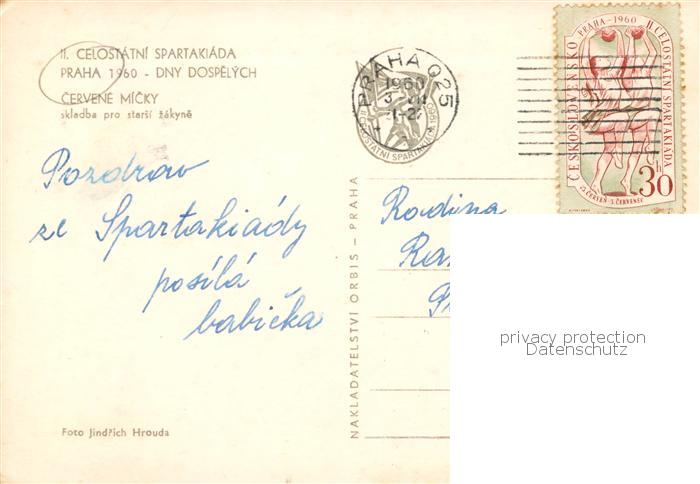 II. CELOSTÁTNÍ SPARTAKIÁDA
PRAHA 1960 - DNY DOSPĚLÝCH
ČERVENÉ MÍČKY
skladba pro starší žákyně
Pozdrav
ze Spartakiády
posílá
babička
Foto Jindřich Hrouda
NAKLADATELSTVÍ ORBIS – PRAHA
PRAHA 025
1960
CELOSTÁTNÍ SPARTAKIÁDA 1960
PRAHA-1960
II. CELOSTÁTNÍ SPARTAKIÁDA
ČESKOSLOVENSKO
30 h
23. ČERVEN - 3. ČERVENEC
Rodina
privacy protection
Datenschutz